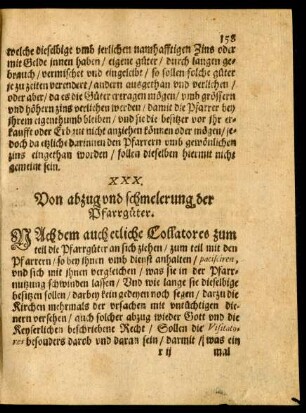 158
welche dieselbige vmb jerlichen namhafftigen Zins oder
mit Gelde innen haben / eigene güter / durch langen ge-
brauch / vermischet vnd eingeleibt / so sollen solche güter
je zu zeiten verendert / andern ausgethan vnd verlichen /
oder aber / da es die Güter ertragen mögen / vmb grössern
vnd höhern zins verlichen werden / damit die Pfarrer bey
ihrem eigenthumb bleiben / vnd sie die besitzer vor ihr er-
kauffte oder Erb nit nicht anziehen können oder mögen / je-
doch da etzliche darinnen den Pfarrern vmb gewönlichen
zins eingethan worden / sollen dieselben hiermit nicht
gemeint sein.
XXX.
Von abzug vnd schmelerung der
Pfarrgüter.
NAch dem auch etliche Collatores zum
teil die Pfarrgüter an sich ziehen / zum teil mit den
Pfarrern / so bey ihnen vmb dienst anhalten / pacisciren,
vnd sich mit ihnen vergleichen / was sie in der Pfarr-
nutzung schwinden lassen / Vnd wie lange sie dieselbige
besitzen sollen / darbey kein gedeyen noch segen / darzu die
Kirchen mehrmals der vrsachen mit vntüchtigen die-
nern versehen / auch solcher abzug wieder Gott vnd die
Keyserlichen beschriebene Recht / Sollen die Visitato-
res besonders darob vnd daran sein / darmit / was ein
r ij mal